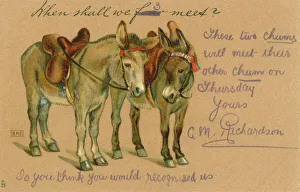 When shall we 3 meet?
These two chums
will meet their
other chum on
Thursday
Yours
C. M. Richardson
Do you think you would recognise us